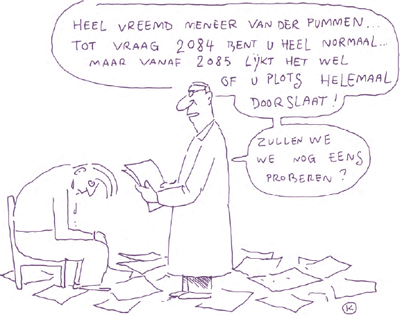 HEEL VREEMD MENEER VAN DER PUMMEN...
TOT VRAAG 2084 BENT U HEEL NORMAAL...
MAAR VANAF 2085 LIJKT HET WEL
OF U PLOTS HELEMAAL
DOORSLAAT!
ZULLEN WE
WE NOG EENS
PROBEREN?
K